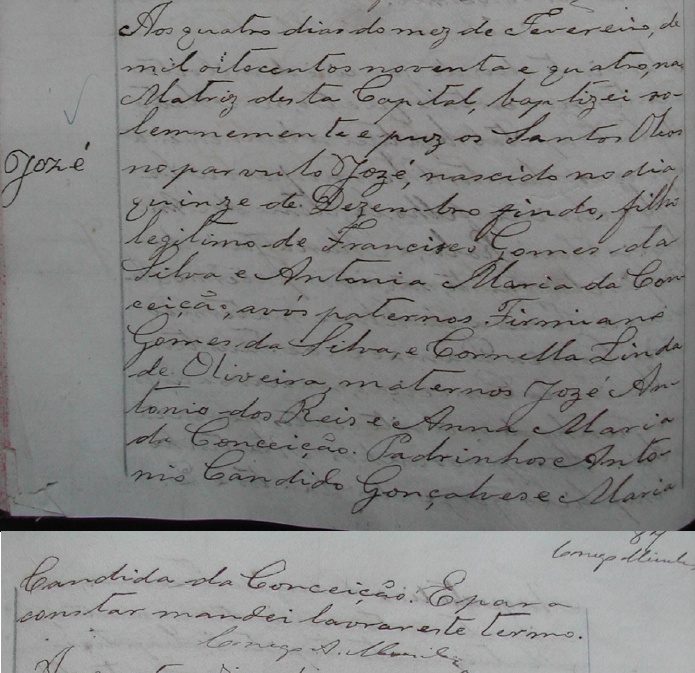 Aos quatro dias do mez de Fevereiro, de
mil oitocentos noventa e quatro, na
Matriz desta Capital, baptizei so-
lemnemente e puz os Santos Oleos
Jozé
no parvulo Jozé, nascido no dia
quinze de Dezembro findo, filho
legitimo de Francisco Gomes da
Silva e Antonia Maria da Con-
ceição, avós paternos Firmiano
Gomes da Silva, e Cornella Linda
de Oliveira, maternos Jozé An-
tonio dos Reis e Anna Maria
da Conceição. Padrinhos Anto-
nio Candido Gonçalves e Maria
Conego
Candida da Conceição. E para
constar mandei lavrar este termo.
Conego A.